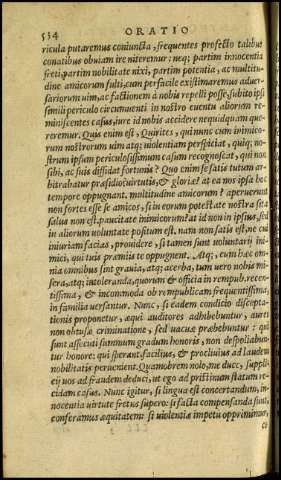 534 ORATIO
ricula putaremus coniuncta, frequentes profecto talibus
conatibus obuiam ire niteremur: neq; partim innocentia
freti, partim nobilitate nixi, partim potentia, ac multitu-
dine amicorum fulti, cum perfacile existimaremus aduer-
sariorum uim, ac factionem à nobis repelli posse, subito ipsi
simili periculo circumuenti in nostro euentu aliorum re-
miniscentes casus, iure id nobis accidere nequidquam que-
reremur. Quis enim est, Quirites, qui nunc cum inimico-
rum nostrorum uim atq; uiolentiam perspiciat, quiq; no-
strum ipsum periculosissimum casum recognoscat, qui non
sibi, ac suis diffidat fortunis? Quo enim se satis tutum ar-
bitrabatur præsidio? uirtutis, & gloriæ? at ea nos ipsa hoc
tempore oppugnant. multitudine amicorum? aperuerunt
non fortes esse se amici, si in eorum potestate nostra sita
salus non est. paucitate inimicorum? at id non in ipsius, sed
in aliorum uoluntate positum est. nam non satis est, ne cui
iniuriam facias, prouidere, si tamen sunt uoluntarij ini-
mici, qui tuis præmijs te oppugnent. Atq; cum hæc om-
nia omnibus sint grauia, atq; acerba, tum uero nobis mi-
sera, atq; intoleranda, quorum & officia in rempub. recen-
tissima, & incommoda ob rempublicam frequentissima,
in familia uersantur. Nunc, si eadem condicio discepta-
tionis proponetur, æqui auditores adhibebuntur, aures
non obtusæ criminatione, sed uacuæ præbebuntur: qui
sunt assecuti summum gradum honoris, non despoliabun-
tur honore: qui sperant, facilius, & procliuius ad laudem
nobilitatis peruenient. Quamobrem nolo, me ducc, suppli-
cij uos ad fraudem deduci, ut ego ad pristinum statum re-
cidam casus. Nunc igitur, si lingua est concertandum, in-
nocentia uirtute fretus supero: si facta compensanda sunt,
conferamus æquitatem: si uiolentiæ impetu opprimimur,